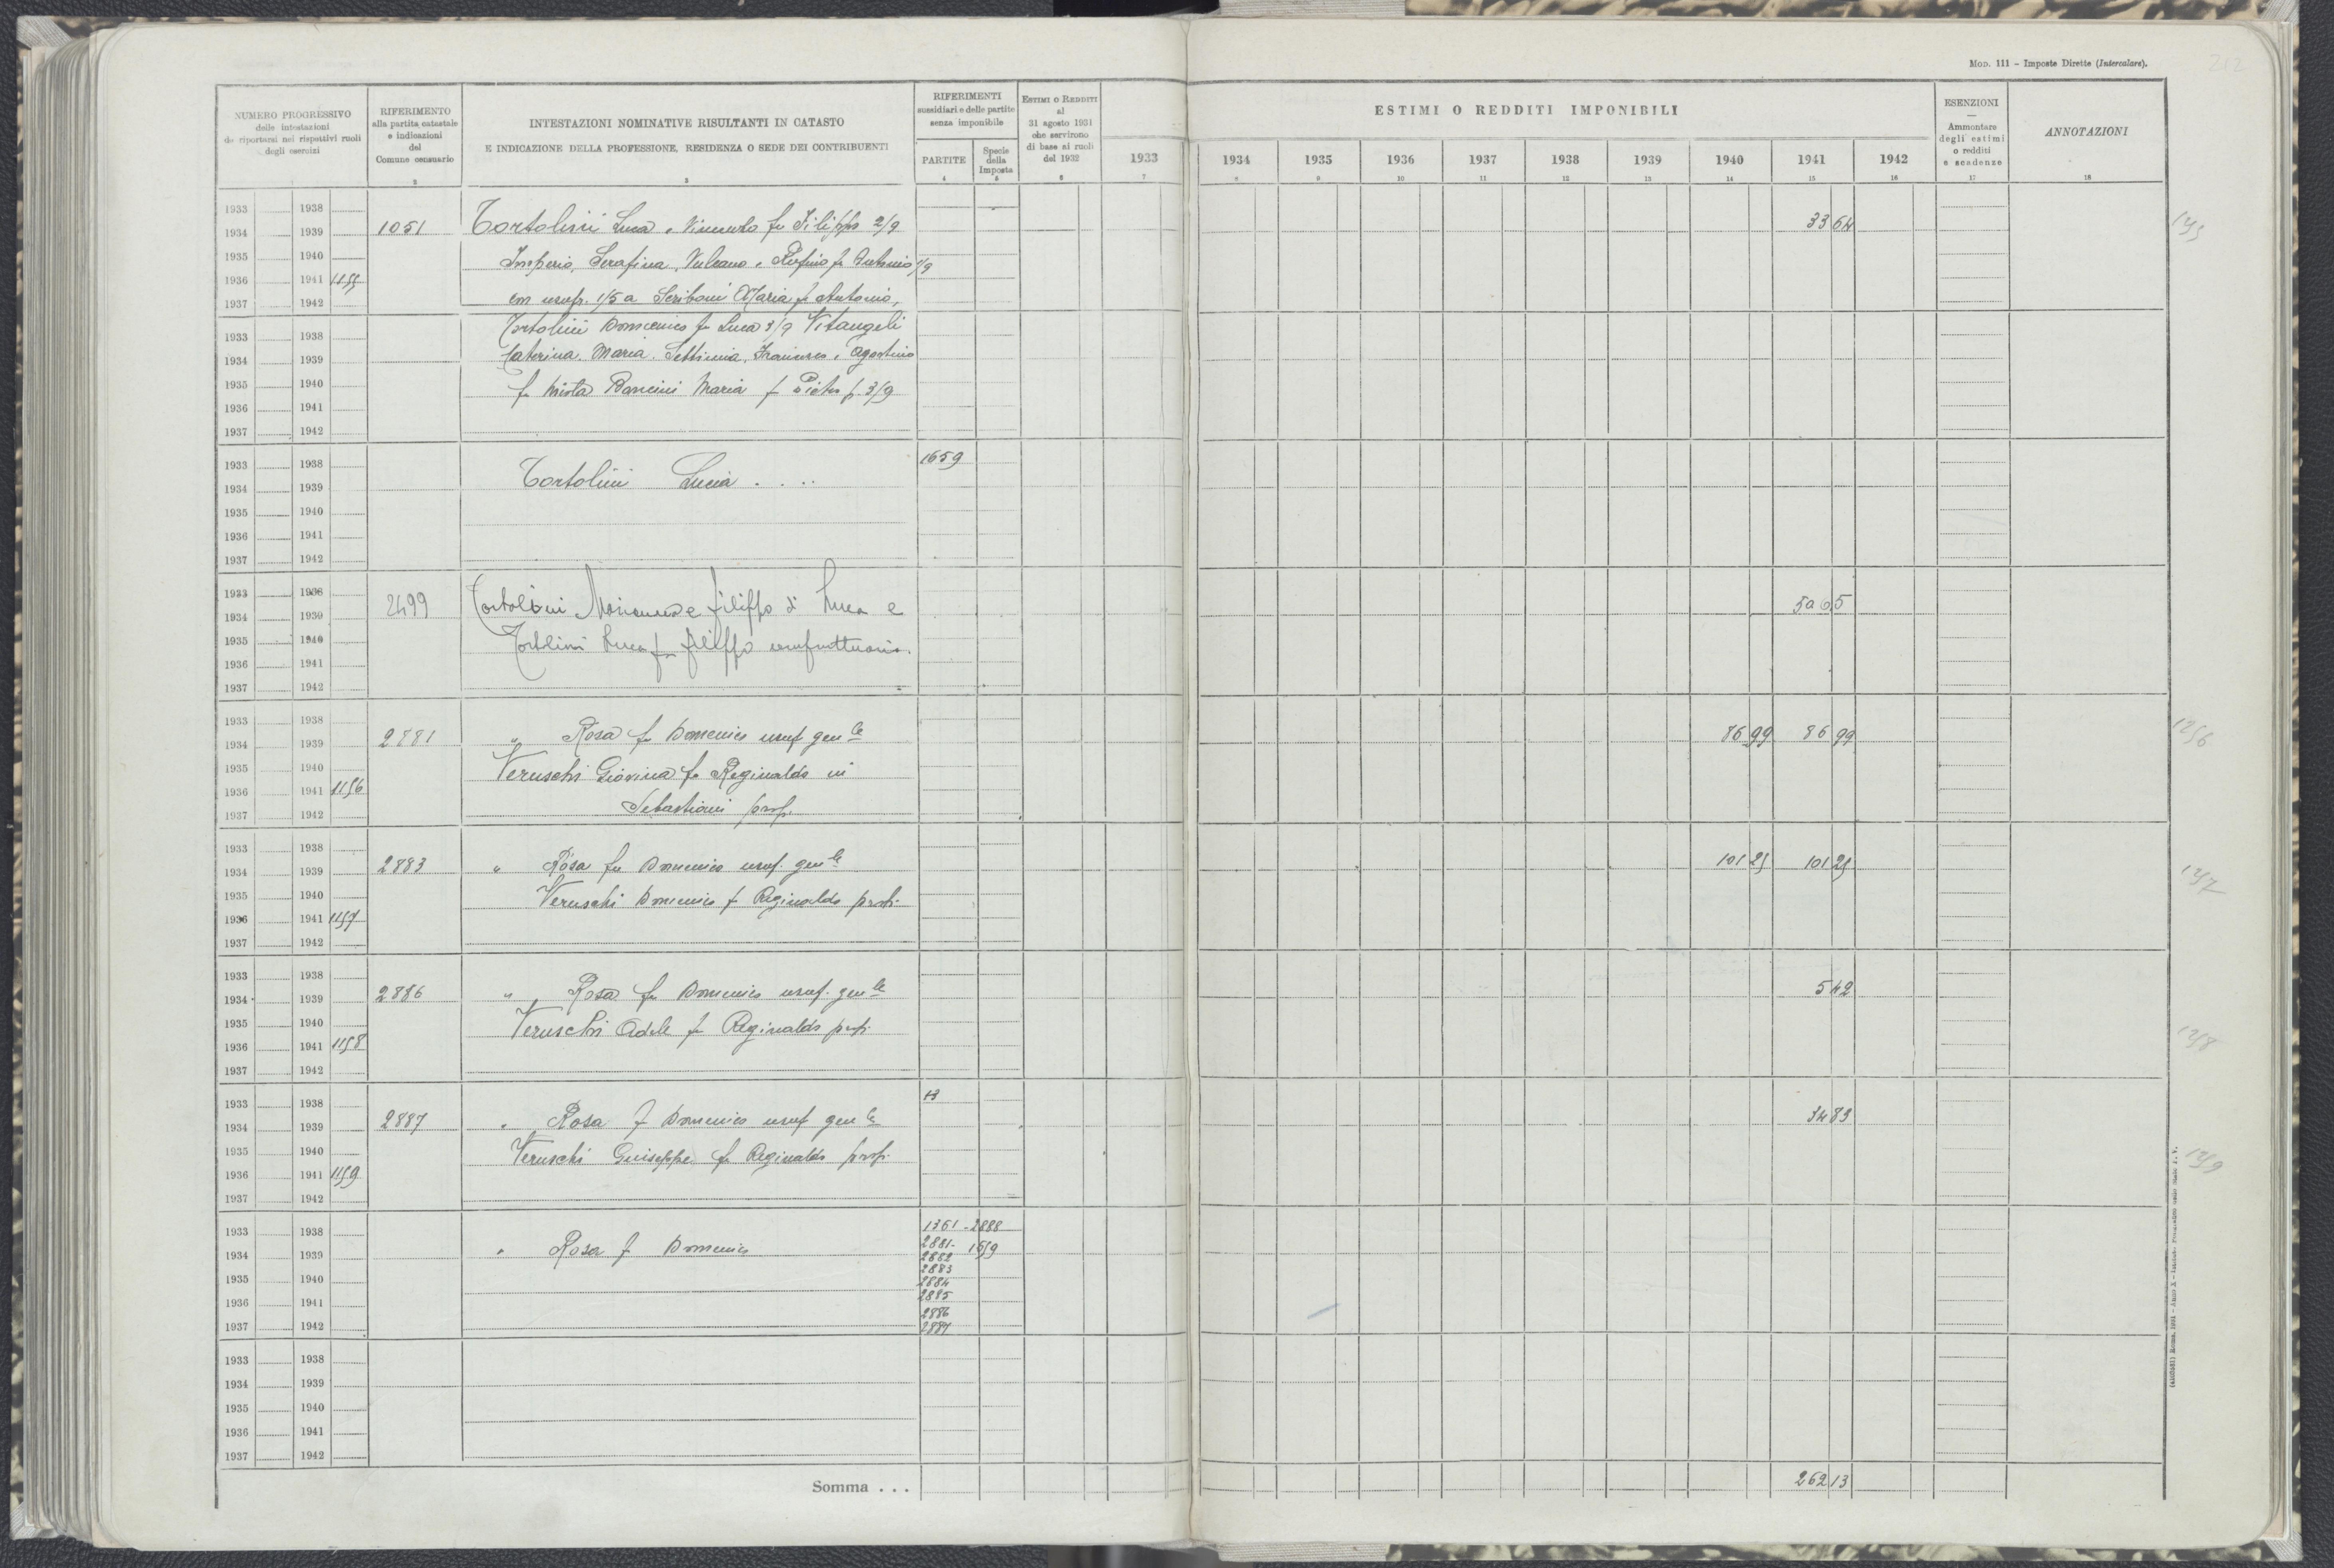 MOD. 111 - Imposte Dirette (Intercalare).
212
NUMERO PROGRESSIVO
delle intestazioni
da riportarsi nei rispettivi ruoli
degli esercizi
RIFERIMENTO
alla partita catastale
e indicazioni
del
Comune censuario
2
INTESTAZIONI NOMINATIVE RISULTANTI IN CATASTO
E INDICAZIONE DELLA PROFESSIONE, RESIDENZA O SEDE DEI CONTRIBUENTI
3
RIFERIMENTI
sussidiari e delle partite
senza imponibile
PARTITE
4
Specie
della
Imposta
5
ESTIMI O REDDITI
al
31 agosto 1931
che servirono
di base ai ruoli
del 1932
6
1933
7
ESTIMI O REDDITI IMPONIBILI
1934 1935 1936 1937 1938 1939 1940 1941 1942
8 9 10 11 12 13 14 15 16
ESENZIONI
Ammontare
degli estimi
o redditi
e scadenze
17
ANNOTAZIONI
18
1933 1938
1934 1939 1051 Tortolini Luca e Vincenzo fu Filippo 2/9 33 64
1935 1940 Imperio, Serafina, Vulcano e Rufino fu Antonio 1/9
1936 1941 1155
1937 1942 con usufr. 1/5 a Scriboni Maria fu Antonio,
1933 1938 Tortolini Domenico fu Luca 3/9 Vitangeli
1934 1939 Caterina, Maria, Settimia, Francesco e Agostino
1935 1940 Bancini Maria 3/9
1936 1941
1937 1942
1933 1938 1659
1934 1939 Tortolini Lucia . . . .
1935 1940
1936 1941
1937 1942
1933 1938
1934 1939 2499 Tortolini Marianna e Filippo di Luca e 50 65
1935 1940 Tortolini Luca fu Filippo usufruttuario.
1936 1941
1937 1942
1933 1938
1934 1939 2881 " Rosa fu Domenico usuf genle 86 99 86 99 1256
1935 1940 Veruschi Giovina fu Reginaldo in
1936 1941 1156
1937 1942 Sebastiani prop.
1933 1938
1934 1939 2883 " Rosa fu Domenico usuf. genle 101 25 101 25 1257
1935 1940 Veruschi Domenico fu Reginaldo prop.
1936 1941 1157
1937 1942
1933 1938
1934 1939 2886 " Rosa fu Domenico usuf. genle 5 42
1935 1940 Veruschi Adele fu Reginaldo prop. 1258
1936 1941 1158
1937 1942
1933 1938 13
1934 1939 2887 " Rosa f Domenico usuf genle 34 83
1935 1940 Veruschi Guiseppe fu Reginaldo prop. 1259
1936 1941 1159
1937 1942
1933 1938 1361 - 2888
1934 1939 " Rosa f Domenico 2881 - 1659
2882
2883
1935 1940 2884
1936 1941 2885
2886
1937 1942 2887
1933 1938
1934 1939
1935 1940
1936 1941
1937 1942
Somma . . . 262 13